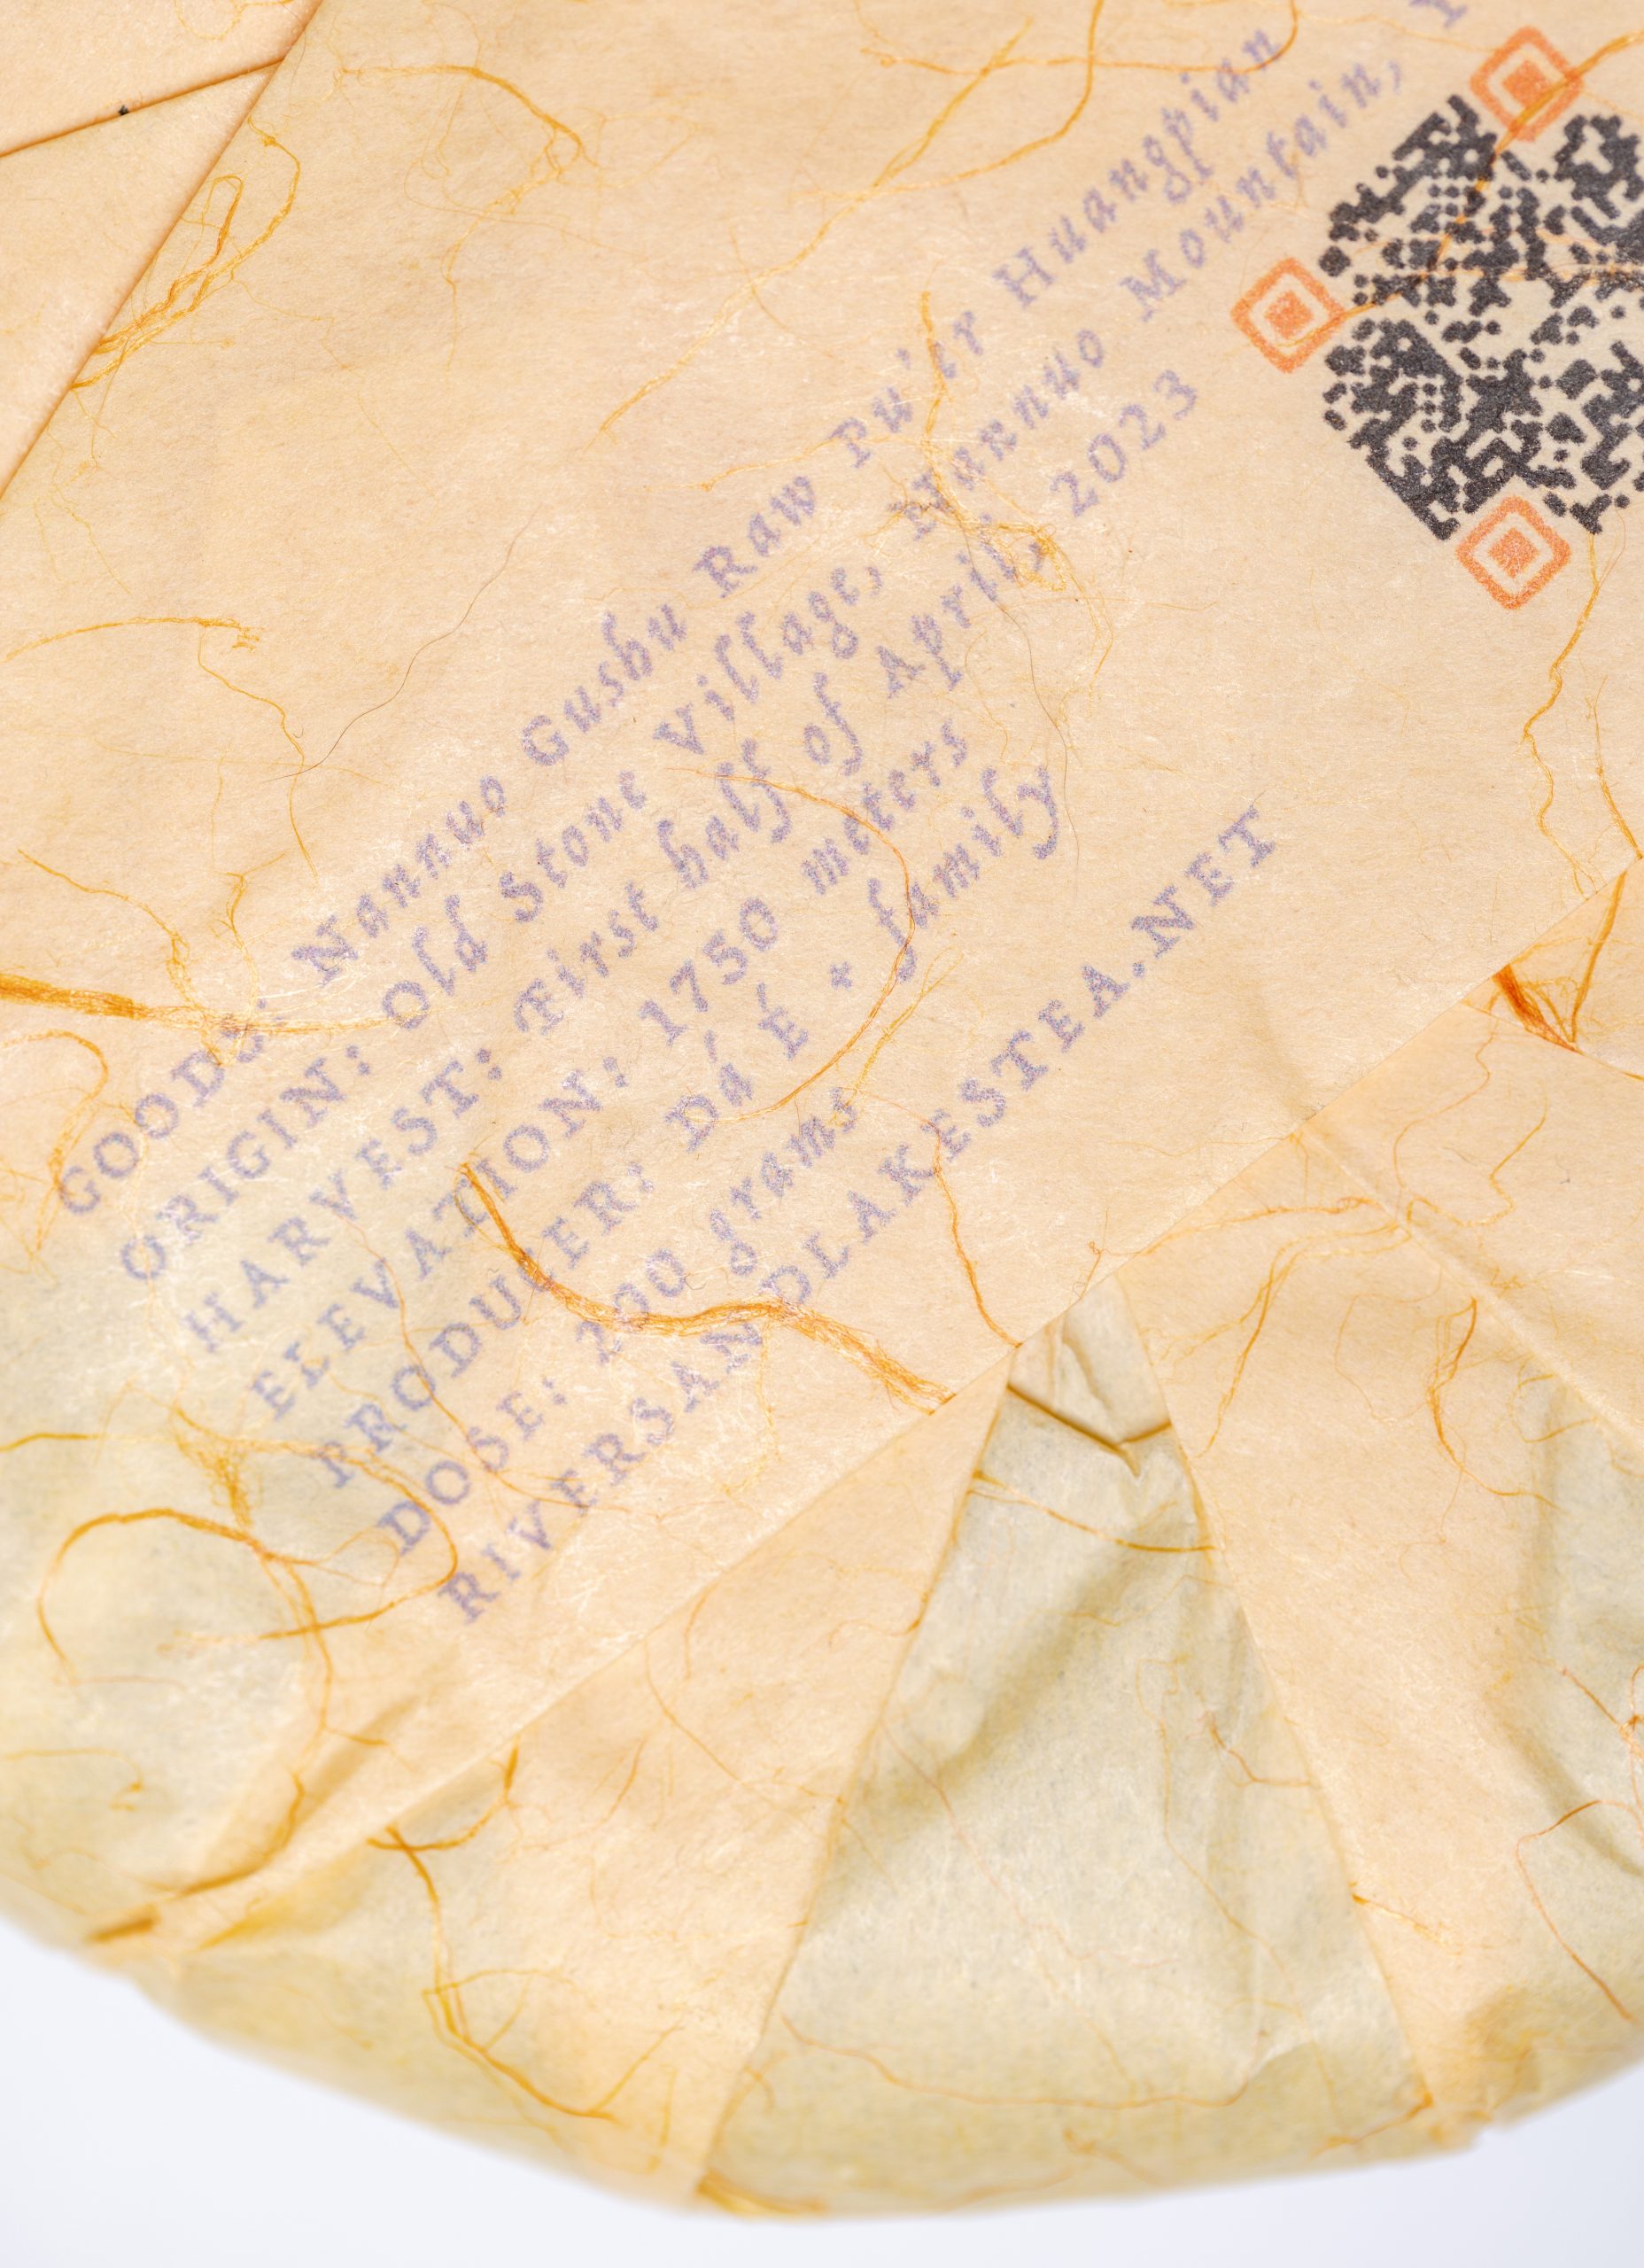 GOODS: Nannuo Gushu Raw Pu'er Huangpian
ORIGIN: Old Stone Village, Nannuo Mountain,
HARVEST: First half of April, 2023
ELEVATION: 1750 meters
PRODUCER: Dá É + family
DOSE: 200 grams
RIVERSANDLAKESTEA.NET